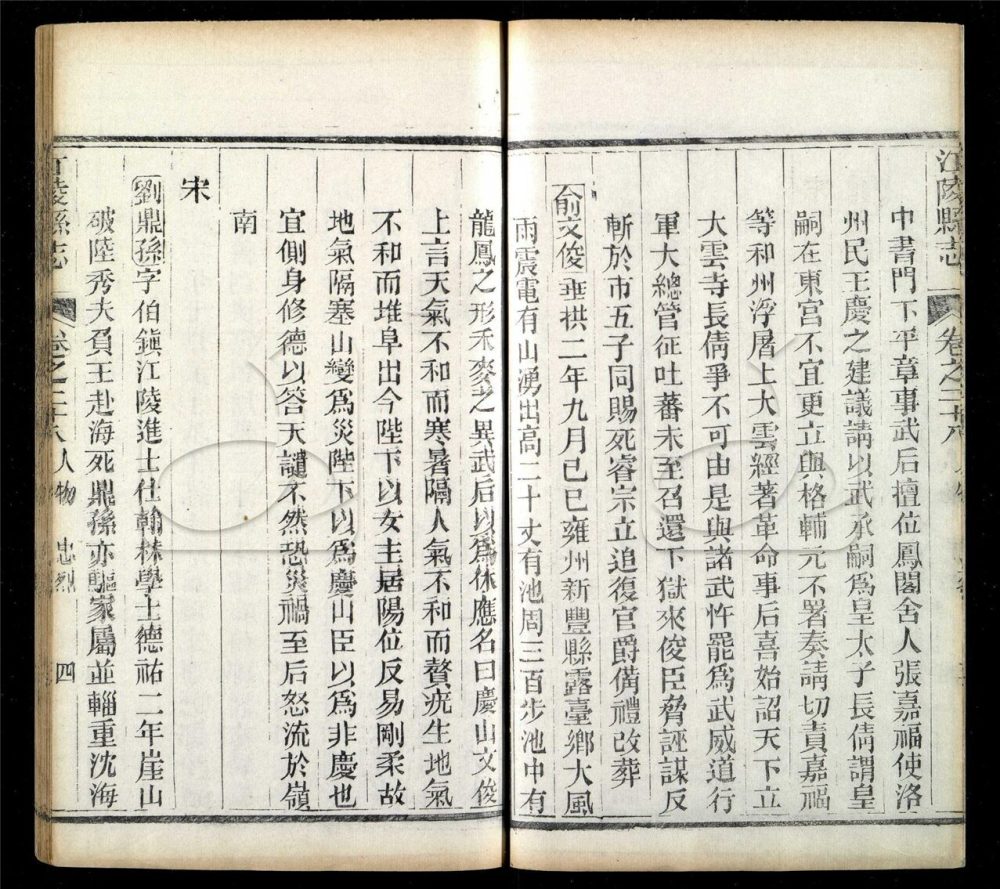 江陵縣志 卷之二十八
中書門下平章事武后擅位鳳閣舍人張嘉福使洛
州民王慶之建議請以武承嗣爲皇太子長倩謂皇
嗣在東宮不宜更立與格輔元不署奏請切責嘉福
等和州浮屠上大雲經著革命事后喜始詔天下立
大雲寺長倩爭不可由是與諸武忤罷爲武威道行
軍大總管征吐蕃未至召還下獄來俊臣脅誣謀反
斬於市五子同賜死睿宗立追復官爵備禮改葬
俞文俊垂拱二年九月己巳雍州新豐縣露臺鄉大風
雨震電有山湧出高二十丈有池周三百步池中有
龍鳳之形禾麥之異武后以爲休應名曰慶山文俊
上言天氣不和而寒暑隔人氣不和而贅疣生地氣
不和而堆阜出今陛下以女主居陽位反易剛柔故
地氣隔塞山變爲災陛下以爲慶山臣以爲非慶也
宜側身修德以答天譴不然恐災禍至后怒流於嶺
南
宋
劉鼎孫字伯鎭江陵進士仕翰林學士德祐二年崖山
破陸秀夫負王赴海死鼎孫亦驅家屬並輜重沈海
江陵縣志 卷之二十八 人物 忠烈 四